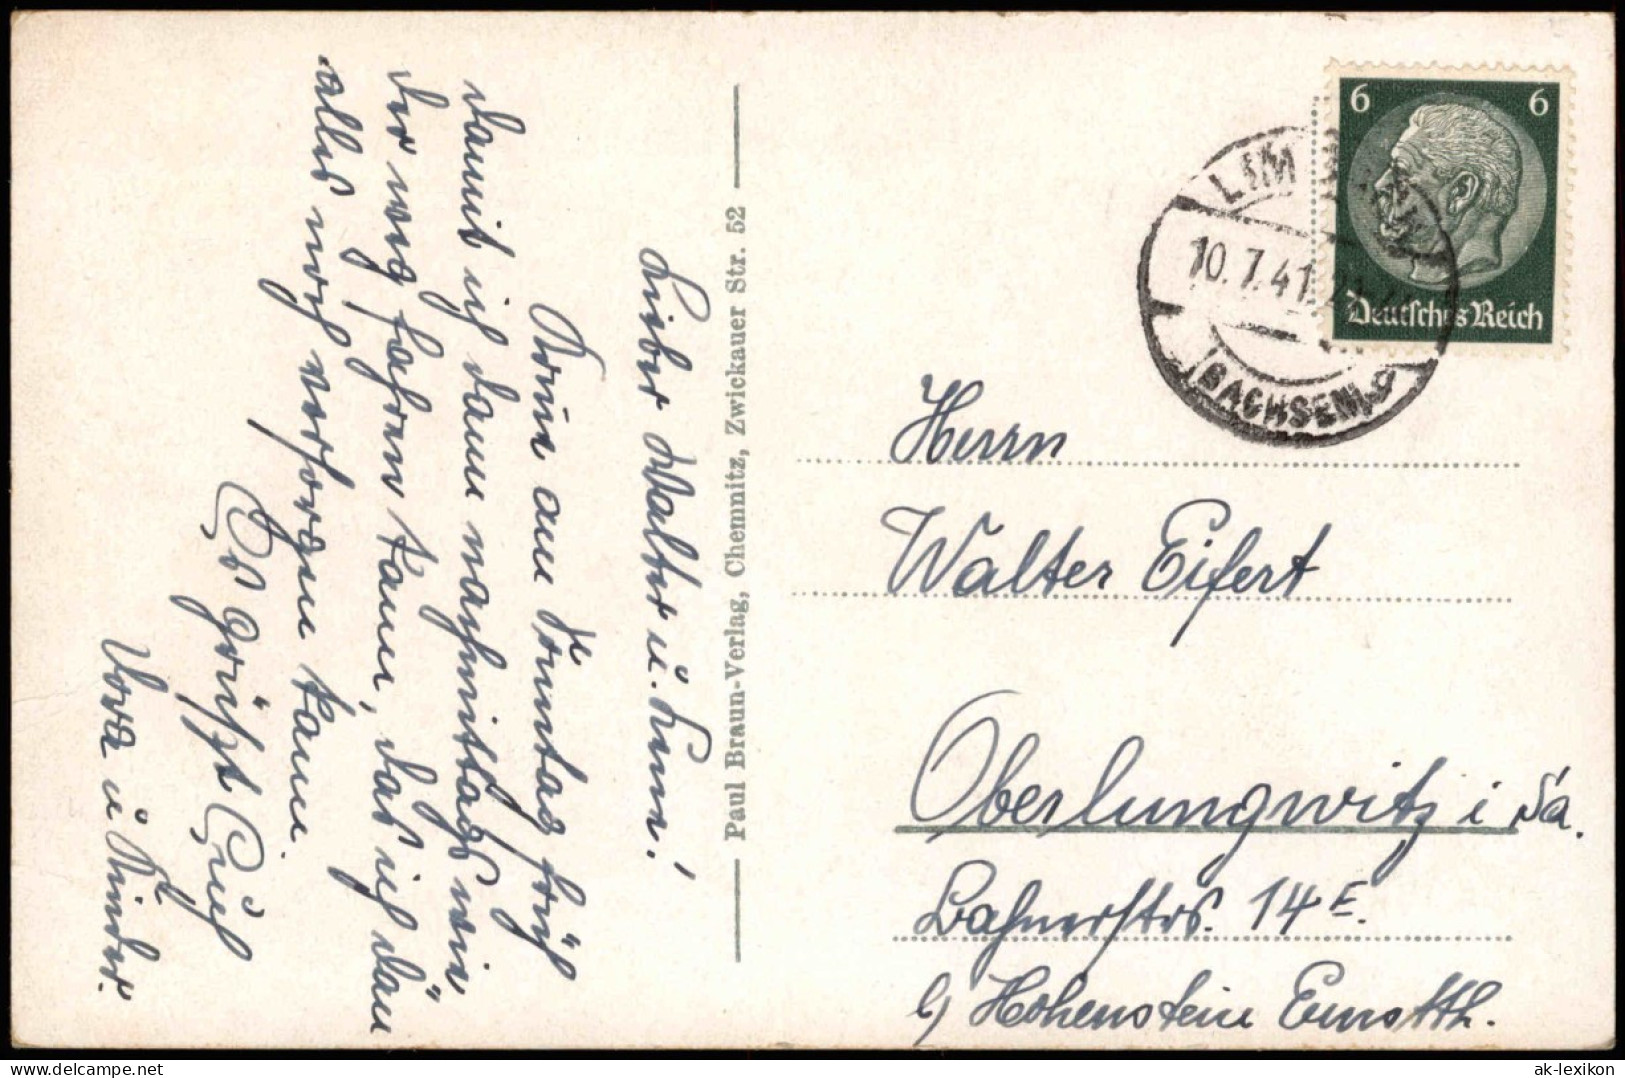 Lieber Walter u. Lenn!
Komm am Sonntag früh
damit ich dann nachmittags wie
der weg fahren kann, das ich dan
alles noch versorgen kann.
Es grüßt Euch
Dora u Kinder.
Paul Braun-Verlag, Chemnitz, Zwickauer Str. 52
6 6
Deutsches Reich
10.7.41
(SACHSEN) g
Herrn
Walter Eifert
Oberlungwitz i Sa.
Bahnerstrs. 14E.
b/ Hohenstein Ernstth.
ak-lexikon